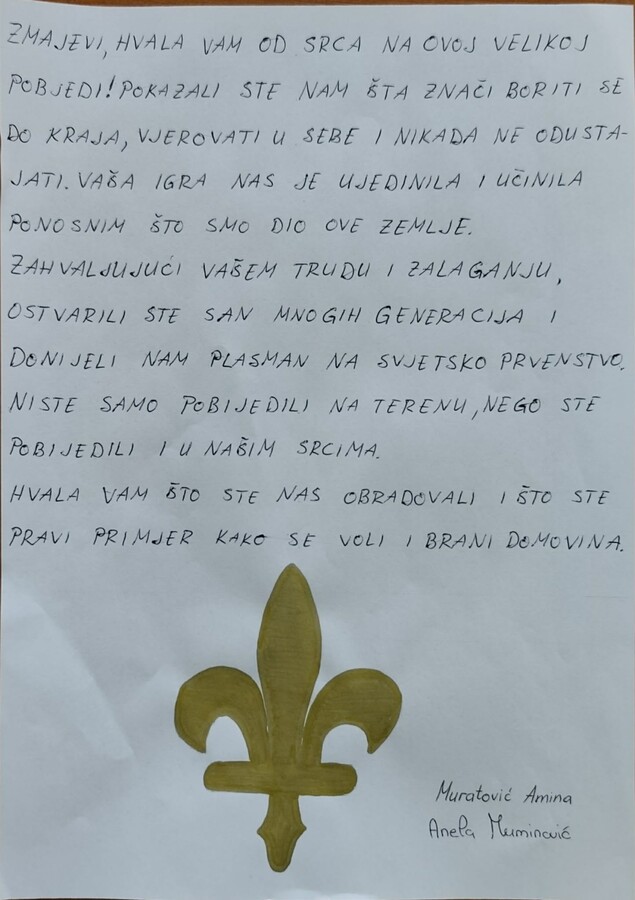 ZMAJEVI, HVALA VAM OD SRCA NA OVOJ VELIKOJ
POBJEDI! POKAZALI STE NAM ŠTA ZNAČI BORITI SE
DO KRAJA, VJEROVATI U SEBE I NIKADA NE ODUSTA-
JATI. VAŠA IGRA NAS JE UJEDINILA I UČINILA
PONOSNIM ŠTO SMO DIO OVE ZEMLJE.
ZAHVALJUJUĆI VAŠEM TRUDU I ZALAGANJU,
OSTVARILI STE SAN MNOGIH GENERACIJA I
DONIJELI NAM PLASMAN NA SVJETSKO PRVENSTVO.
NISTE SAMO POBIJEDILI NA TERENU, NEGO STE
POBIJEDILI I U NAŠIM SRCIMA.
HVALA VAM ŠTO STE NAS OBRADOVALI I ŠTO STE
PRAVI PRIMJER KAKO SE VOLI I BRANI DOMOVINA.
Muratović Amina
Anela Muminović